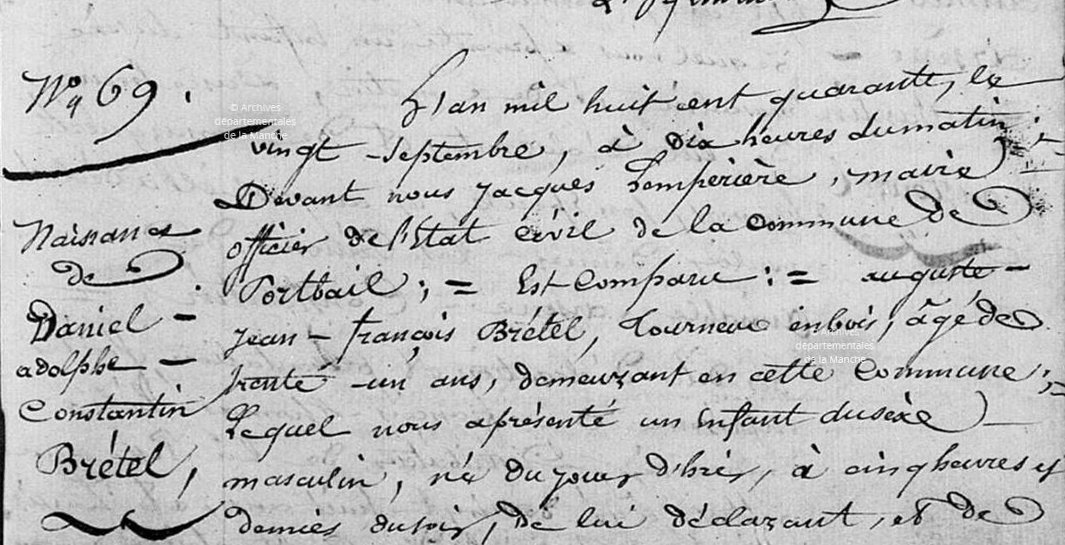 Nº 69.
L'an mil huit cent quarante, le
vingt septembre, à dix heures du matin ;
Devant nous Jacques Lempérière, maire
officier de l'Etat civil de la Commune De
Portbail ; = Est Comparu : = auguste -
jean - françois Brétel, Tourneur en bois, âgé de
trente - un ans, demeurant en cette Commune ; =
Lequel nous a présenté un Enfant du sexe
masculin, né du jour d'hier, à cinq heures et
demies du soir, de lui déclarant, et de
Naissance
de
Daniel -
adolphe -
Constantin
Brétel,
© Archives
départementales
de la Manche
départementales
de la Manche